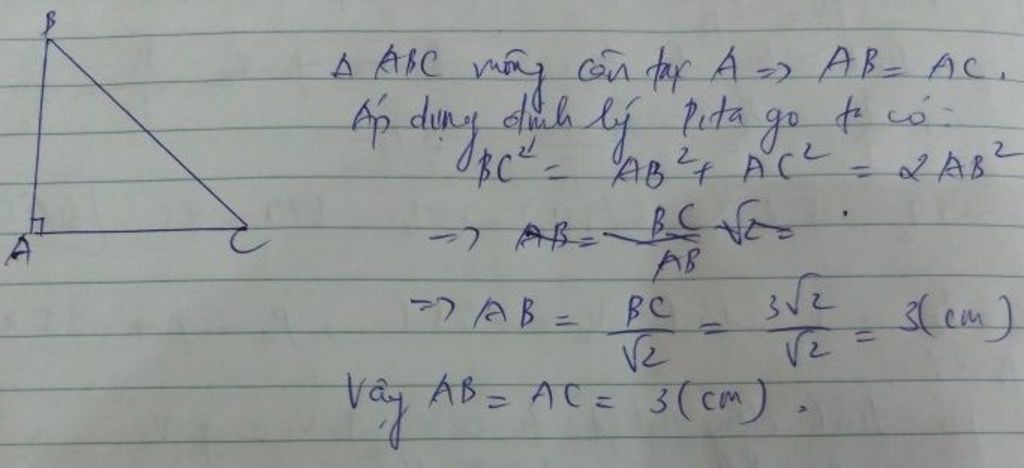 B
A
C
Δ ABC vuông cân tại A => AB = AC.
Áp dụng định lý Pitago ta có:
BC² = AB² + AC² = 2AB²
=> AB = BC/AB √2 =
=> AB = BC/√2 = 3√2/√2 = 3(cm)
Vậy AB = AC = 3(cm).